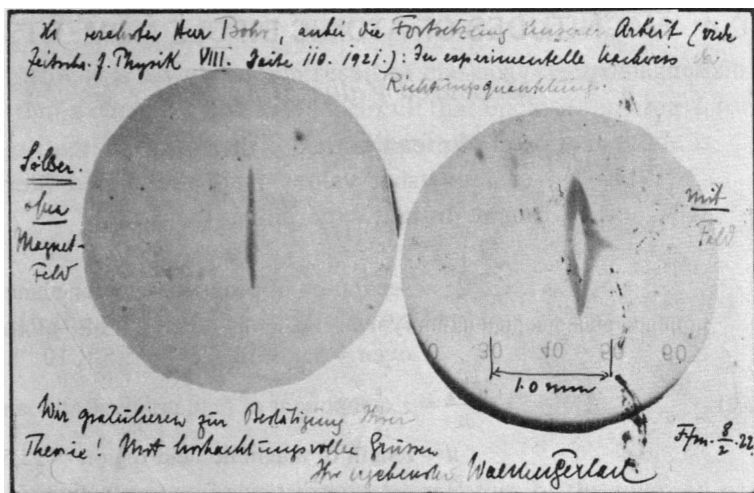 verehrter Herr Bohr, anbei die Fortsetzung unserer Arbeit (vide
Zeitschr. f. Physik VIII. Seite 110. 1921.): Der experimentelle Nachweis der
Richtungsquantelung.
Silber.
ohne
Magnet-
Feld
mit
Feld
0 30 40 50 60
1.0 mm
Wir gratulieren zur Bestätigung Ihrer
Theorie! Mit hochachtungsvollen Grüssen
Ihr ergebenster Walther Gerlach
Ffm. 8/2. 22.